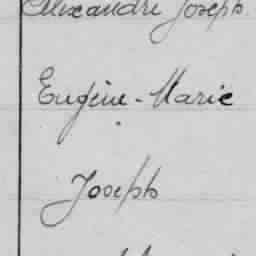 Alexandre Joseph
Eugène-Marie
Joseph